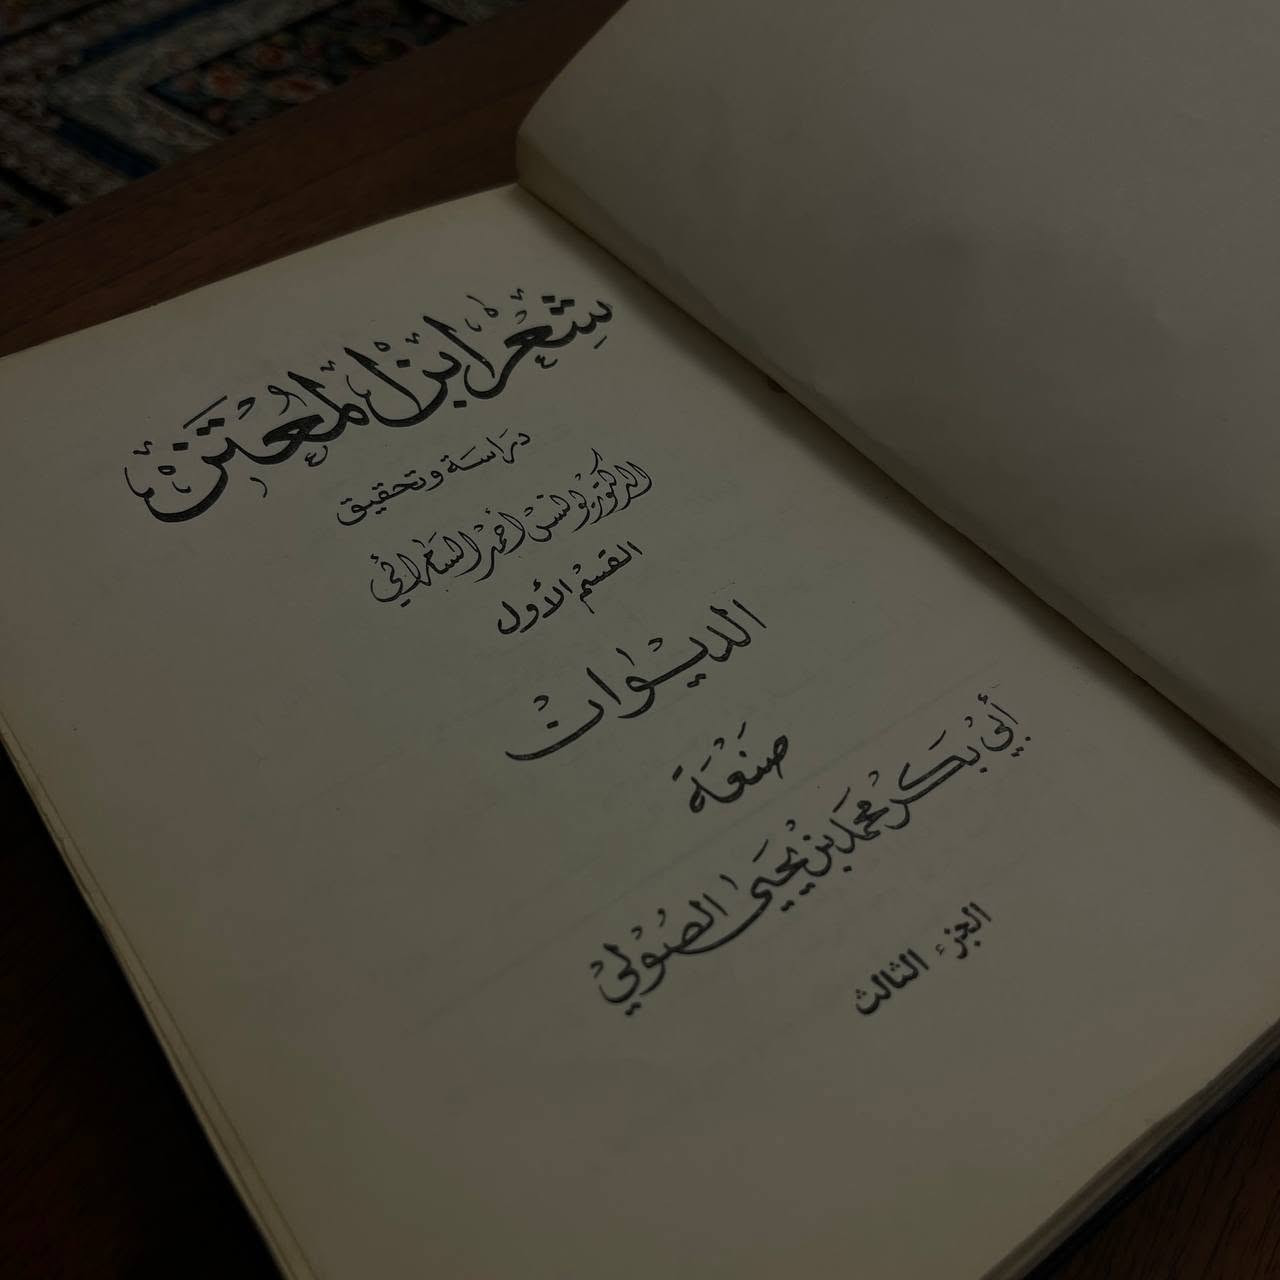 شِعْرُ ابْنِ المُعْتَز
دراسة وتحقيق
الدكتور يونس أحمد السامرائي
القسم الأول
الديوان
صَنْعَة
أبي بَكر محمد بن يحيى الصُولي
الجزء الثالث